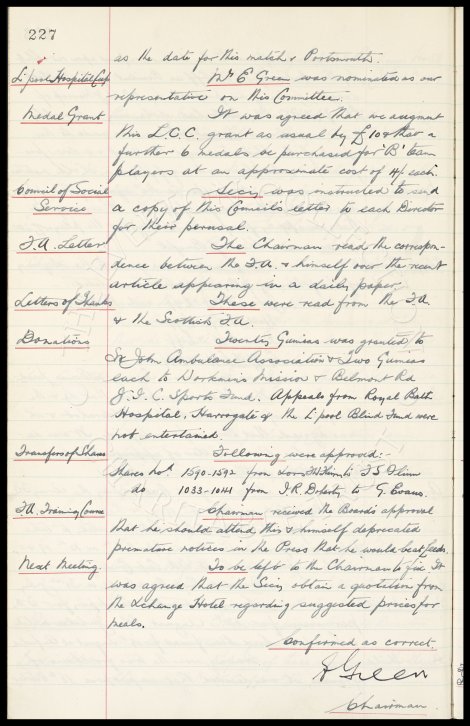 227
as the date for this match v Portsmouth.
L'pool Hospital Cup
Mr E Green was nominated as our
representative on this Committee.
Medal Grant
It was agreed that we augment
this L.C.C. grant as usual by £10 & that a
further 6 medals be purchased for 'B' team
players at an approximate cost of 4/- each.
Council of Social
Service
Secy was instructed to send
a copy of this Council's letter to each Director
for their perusal.
F.A. Letter
The Chairman read the correspon-
dence between the F.A. & himself over the recent
article appearing in a daily paper.
Letters of Thanks
These were read from the F.A
& the Scottish F.A.
Donations
Twenty Guineas was granted to
St John Ambulance Association & Two Guineas
each to Workmens Mission & Belmont Rd
J.I.C. Sports Fund. Appeals from Royal Bath
Hospital, Harrogate & the L'pool Blind Fund were
not entertained.
Transfers of Shares
Following were approved:-
Shares Nos. 1590-1592 from to T S Flinn
do 1033-1041 from J.R. Doherty to G. Evans.
F.A. Training Course
Chairman received the Board's approval
that he should attend this & himself deprecated
premature notices in the Press that he would be at
Next Meeting.
To be left to the Chairman to fix. It
was agreed that the Secy obtain a quotation from
the Xchange Hotel regarding suggested prices for
meals.
Confirmed as correct.
Green
Chairman.